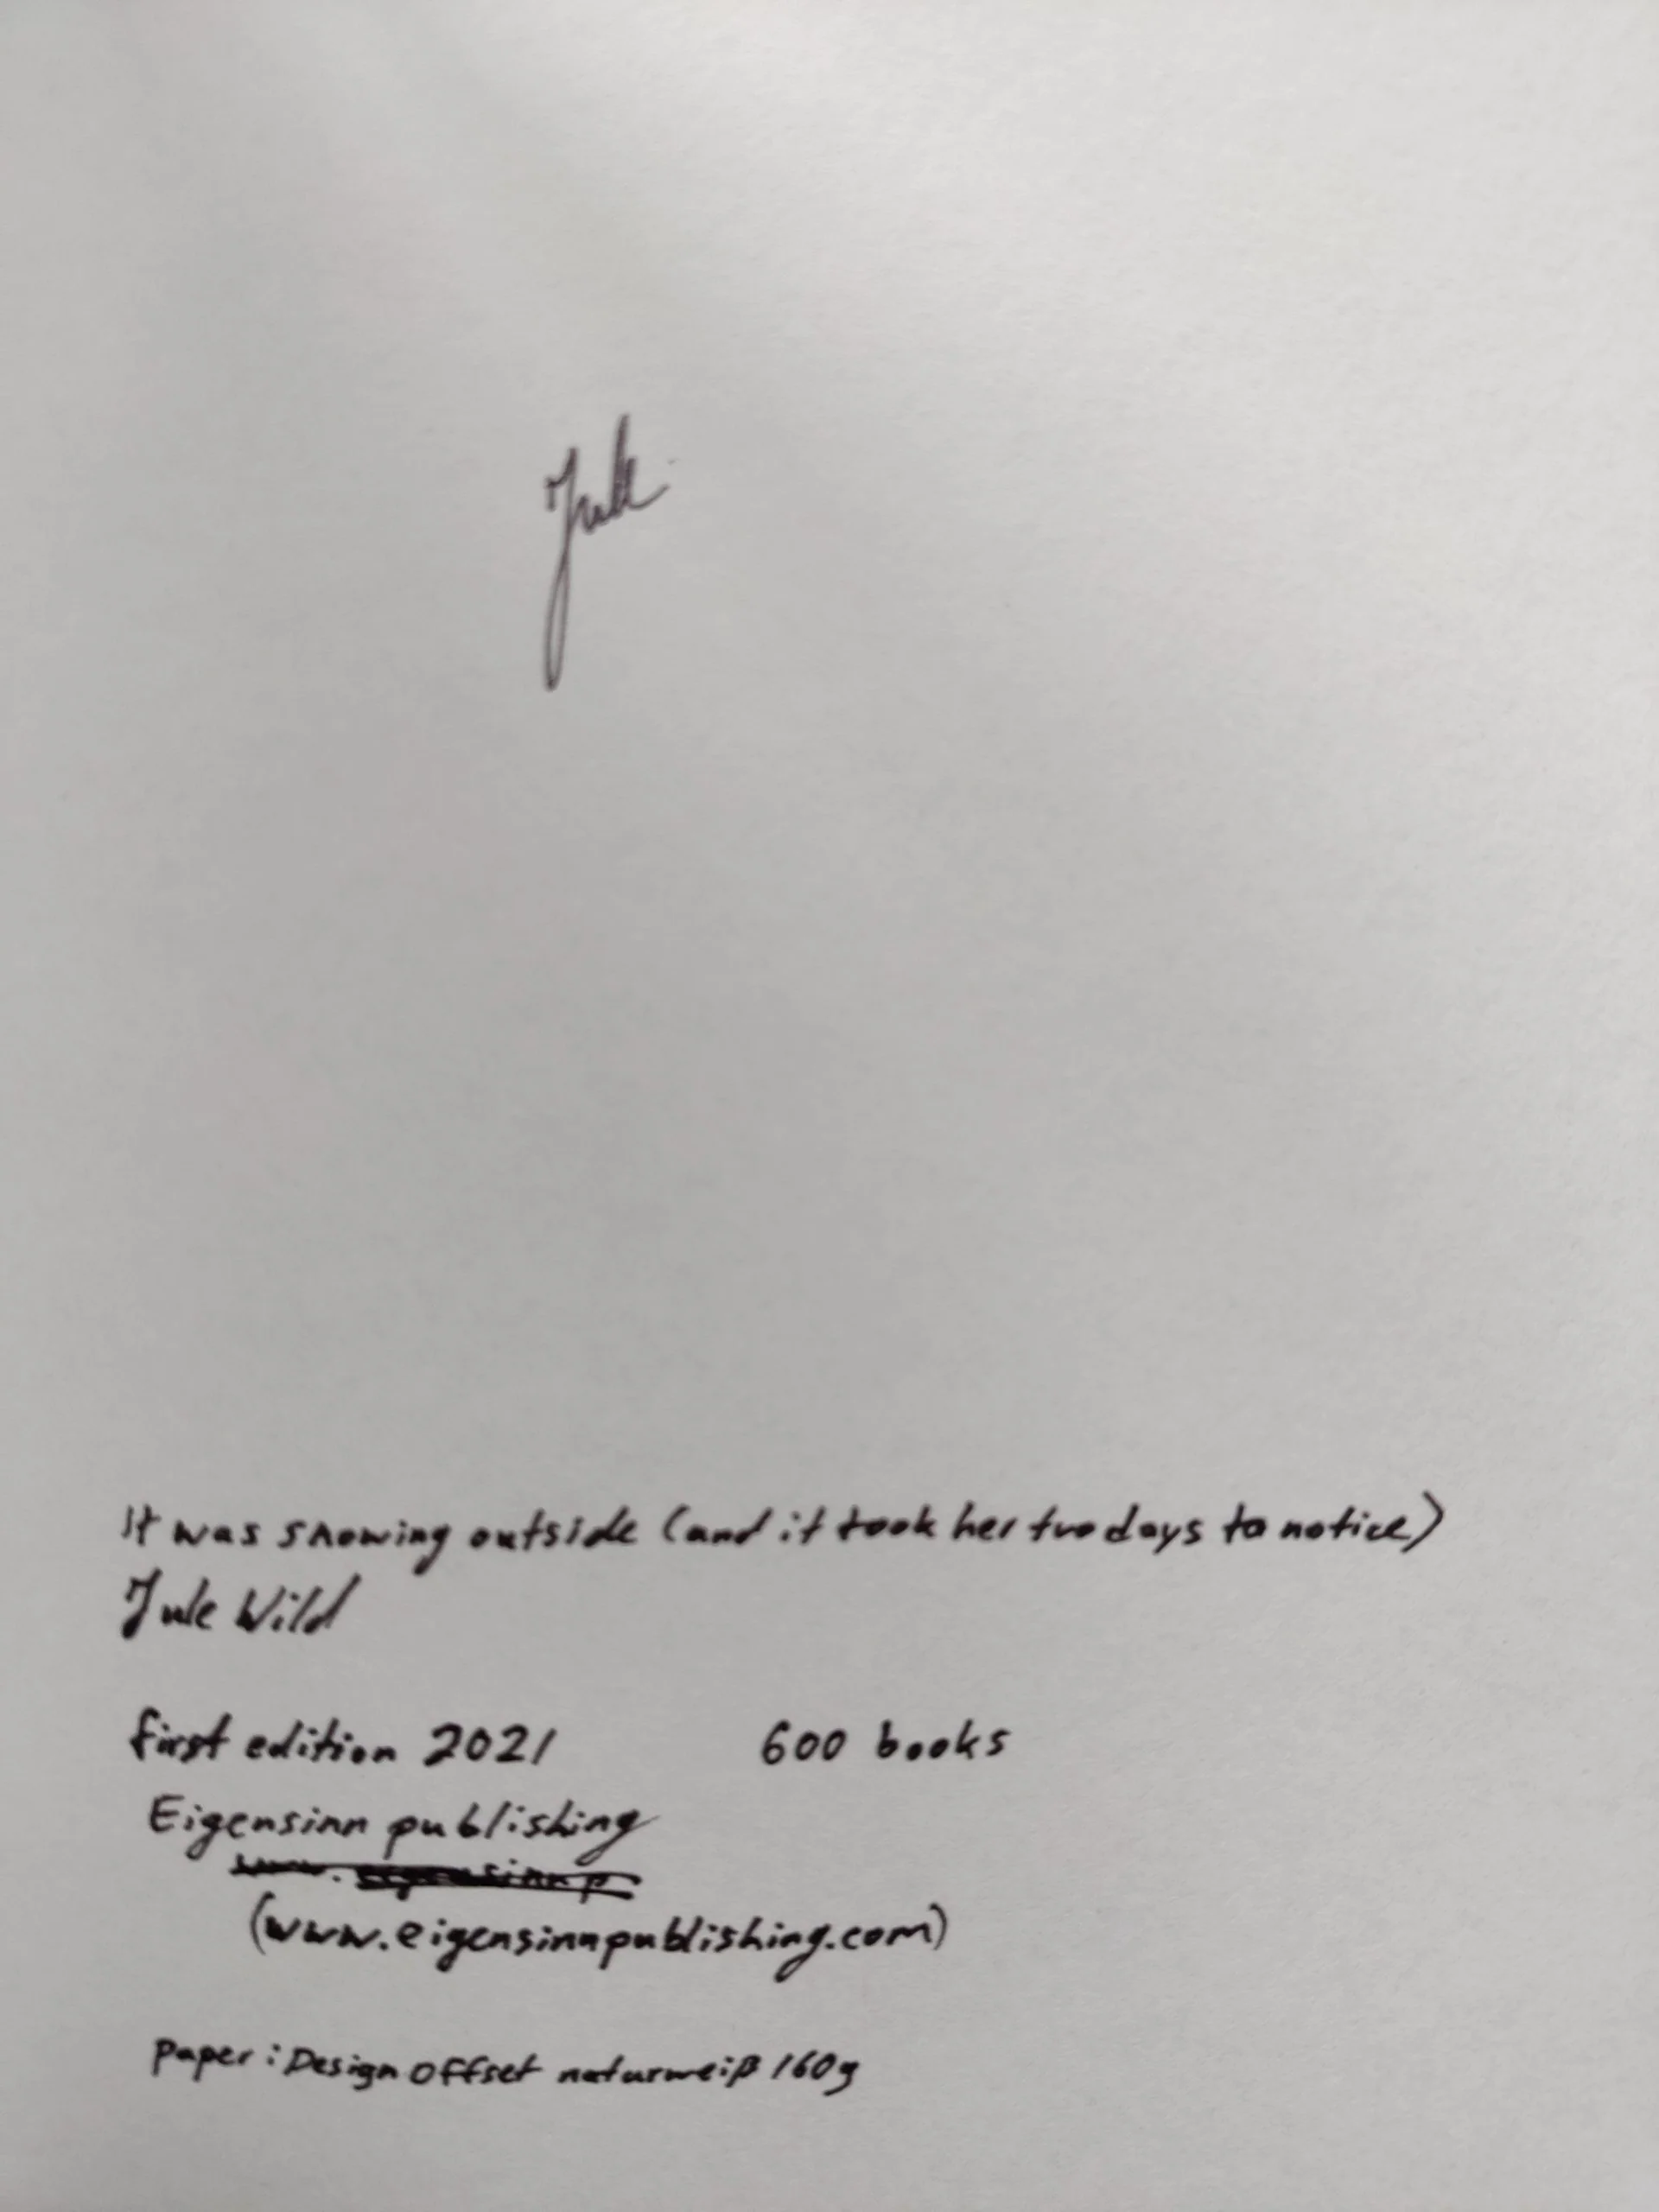 Jule
It was snowing outside (and it took her two days to notice)
Jule Wild
first edition 2021 600 books
Eigensinn publishing
www.eigensinnp
(www.eigensinnpublishing.com)
paper: Design offset naturweiß 160g